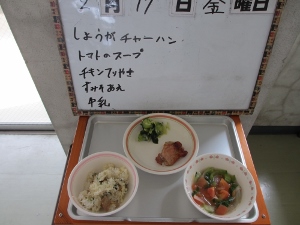 2月17日金曜日
しょうがチャーハン
トマトのスープ
チキンてりやき
すみそあえ
牛乳